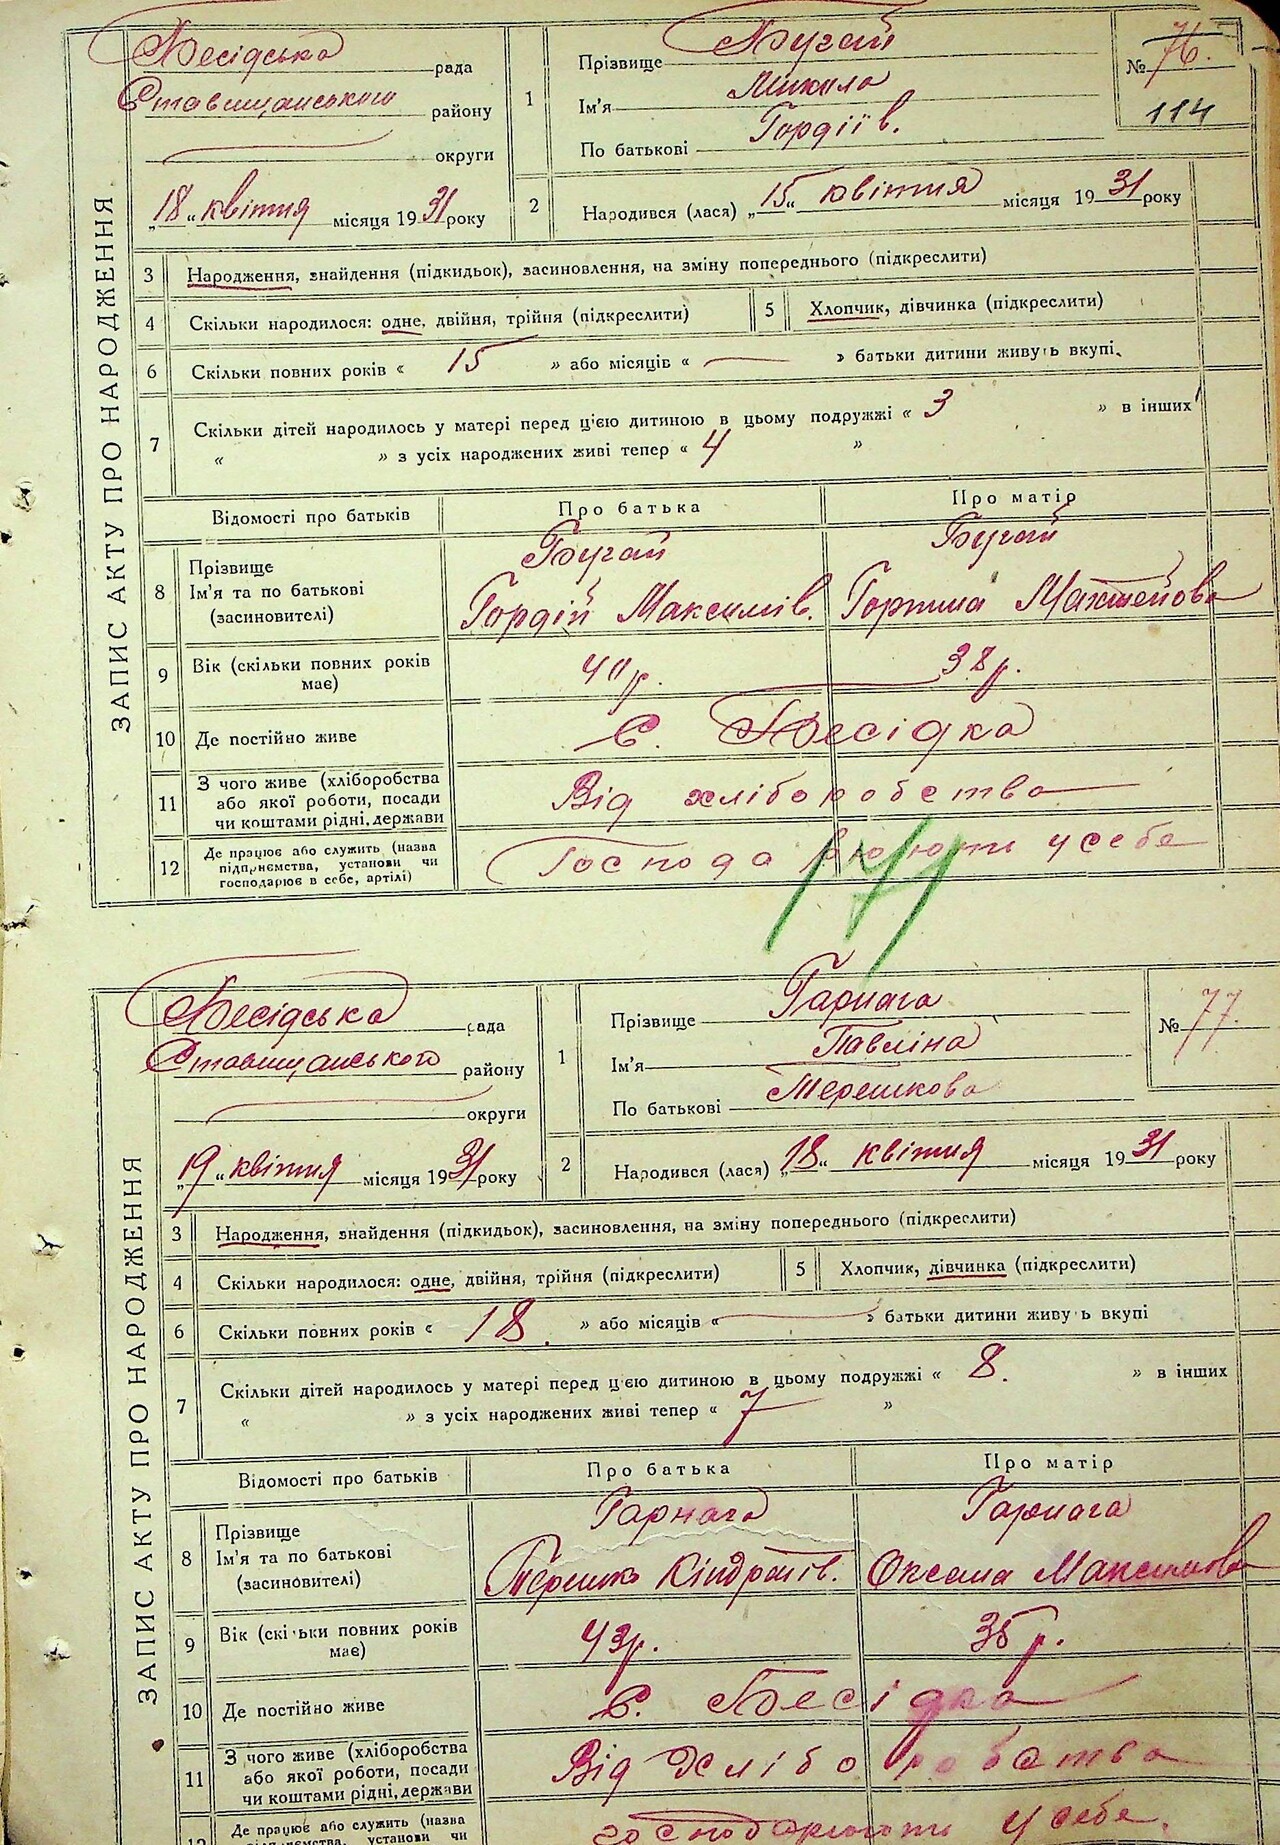 ЗАПИС АКТУ ПРО НАРОДЖЕННЯ
Бесідська рада
Ставищанського району
округи
„18“ квітня місяця 1931 року
1
Прізвище Бугай
Ім'я Микола
По батькові Гордіїв.
№ 76.
114
2
Народився (лася) „15“ квітня місяця 1931 року
3 Народження, знайдення (підкидьок), засиновлення, на зміну попереднього (підкреслити)
4 Скільки народилося: одне, двійня, трійня (підкреслити) 5 Хлопчик, дівчинка (підкреслити)
6 Скільки повних років « 15 » або місяців « — » батьки дитини живуть вкупі.
7 Скільки дітей народилось у матері перед ц'єю дитиною в цьому подружжі « 3 » в інших
« » з усіх народжених живі тепер « 4 »
Відомості про батьків Про батька Про матір
8 Прізвище Бугай Бугай
Ім'я та по батькові Гордій Максимів. Горпина Махтейова
(засиновителі)
9 Вік (скільки повних років має) 40 р. 38 р.
10 Де постійно живе с. Бесідка
11 З чого живе (хліборобства
або якої роботи, посади
чи коштами рідні, держави
Від хліборобства
12 Де працює або служить (назва
підприємства, установи чи
господарює в себе, артілі)
Господарюють у себе
ЗАПИС АКТУ ПРО НАРОДЖЕННЯ
Бесідська рада
Ставищанського району
округи
„19“ квітня місяця 1931 року
1
Прізвище Гарнага
Ім'я Павліна
По батькові Терешкова
№ 77.
2
Народився (лася) „18“ квітня місяця 1931 року
3 Народження, знайдення (підкидьок), засиновлення, на зміну попереднього (підкреслити)
4 Скільки народилося: одне, двійня, трійня (підкреслити) 5 Хлопчик, дівчинка (підкреслити)
6 Скільки повних років « 18. » або місяців « — » батьки дитини живуть вкупі
7 Скільки дітей народилось у матері перед ц'єю дитиною в цьому подружжі « 8. » в інших
« » з усіх народжених живі тепер « 7 »
Відомості про батьків Про батька Про матір
8 Прізвище Гарнага Гарнага
Ім'я та по батькові Терешко Кіндратів. Оксана Максимова
(засиновителі)
9 Вік (скільки повних років має) 43 р. 35 р.
10 Де постійно живе с. Бесідка
11 З чого живе (хліборобства
або якої роботи, посади
чи коштами рідні, держави
Від хліборобства
12 Де працює або служить (назва
підприємства, установи чи
господарюють у себе.